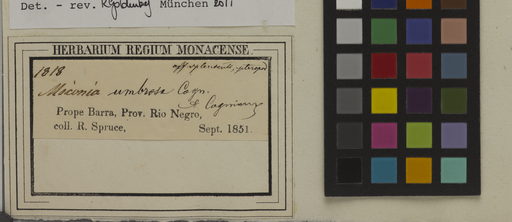 Det. - rev. R.Goldenberg München 2011
HERBARIUM REGIUM MONACENSE.
1818
Miconia umbrosa Cogn.
A. Cogniaux
Prope Barra, Prov. Rio Negro,
coll. R. Spruce, Sept. 1851.